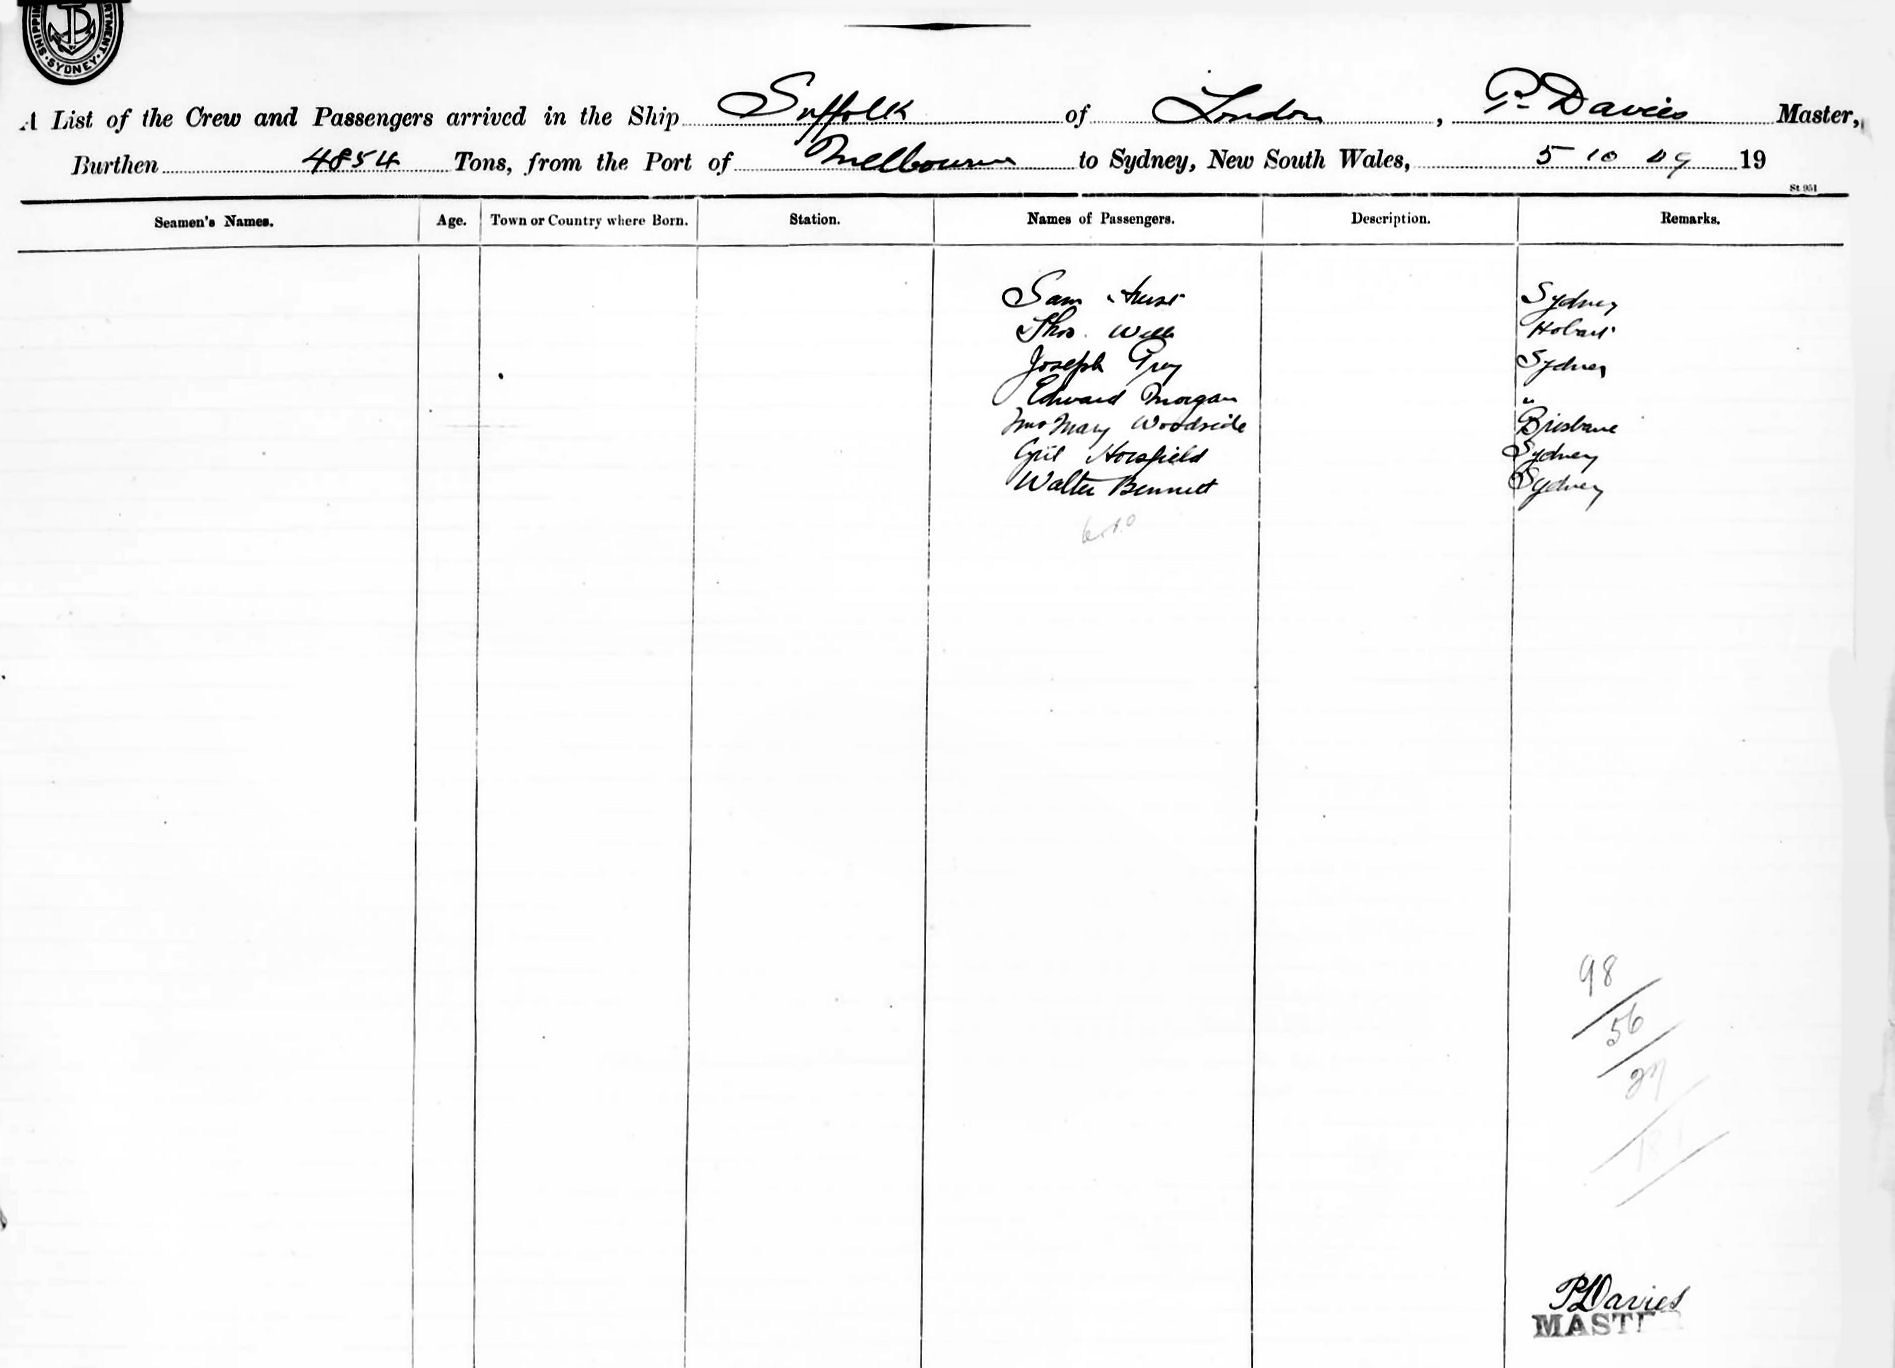 SHIPPING DEPARTMENT SYDNEY
A List of the Crew and Passengers arrived in the Ship Suffolk of London, P. Davies Master,
Burthen 4854 Tons, from the Port of Melbourne to Sydney, New South Wales, 5 10 09 19
St 951
Seamen's Names. Age. Town or Country where Born. Station. Names of Passengers. Description. Remarks.
Sam Sydney
Thos. Wells Hobart
Joseph Grey Sydney
Edward Morgan "
Mrs Mary Woodside Brisbane
Horsfield Sydney
Walter Bennett Sydney
98
56
27
P Davies
MASTER